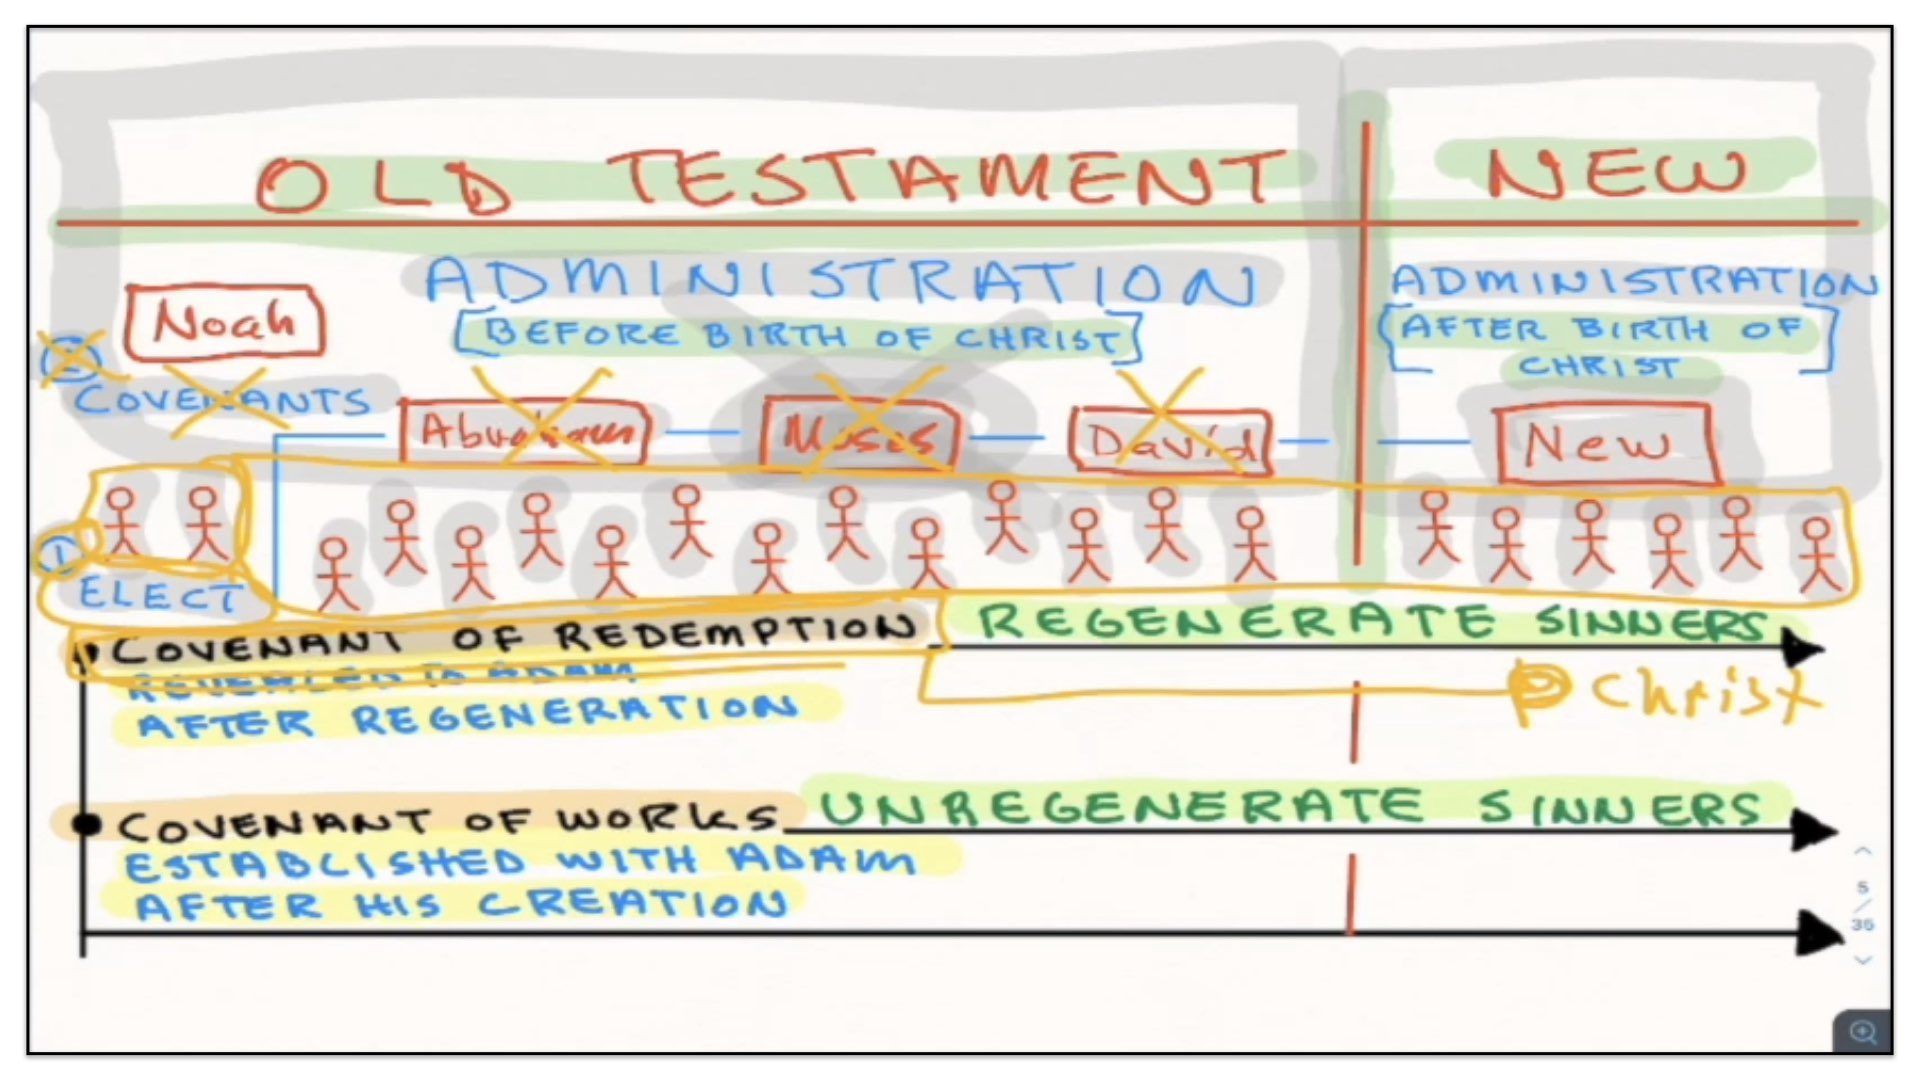 OLD TESTAMENT
NEW
ADMINISTRATION
[BEFORE BIRTH OF CHRIST]
ADMINISTRATION
[AFTER BIRTH OF
CHRIST]
Noah
2
COVENANTS
Abraham
Moses
David
New
1
ELECT
COVENANT OF REDEMPTION
REGENERATE SINNERS
REVEALED TO ADAM
AFTER REGENERATION
Christ
COVENANT OF WORKS
UNREGENERATE SINNERS
ESTABLISHED WITH ADAM
AFTER HIS CREATION
5
/
35